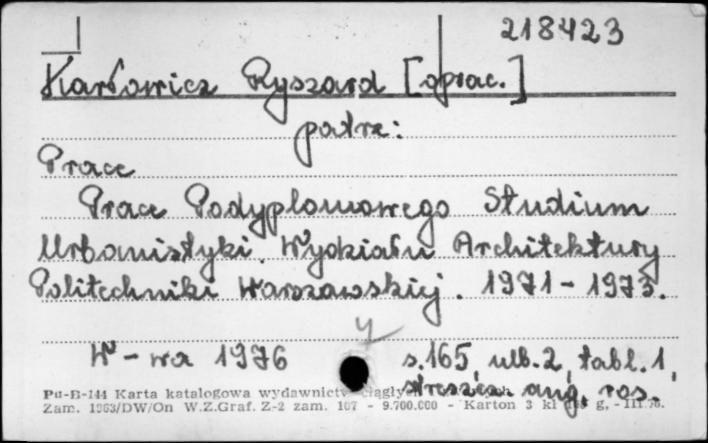 218423
Karłowicz Ryszard [oprac.]
patrz:
Prace
Prace Podyplomowego Studium
Urbanistyki. Wydziału Architektury
Politechniki Warszawskiej. 1971-1973.
W-wa 1976 s.165, ulb.2, tabl.1,
streszcz. ang. ros.
Pu-B-144 Karta katalogowa wydawnictw ciągłych
Zam. 1963/DW/On W.Z.Graf. Z-2 zam. 107 - 9.700.000 - Karton 3 kl g, - III.70.